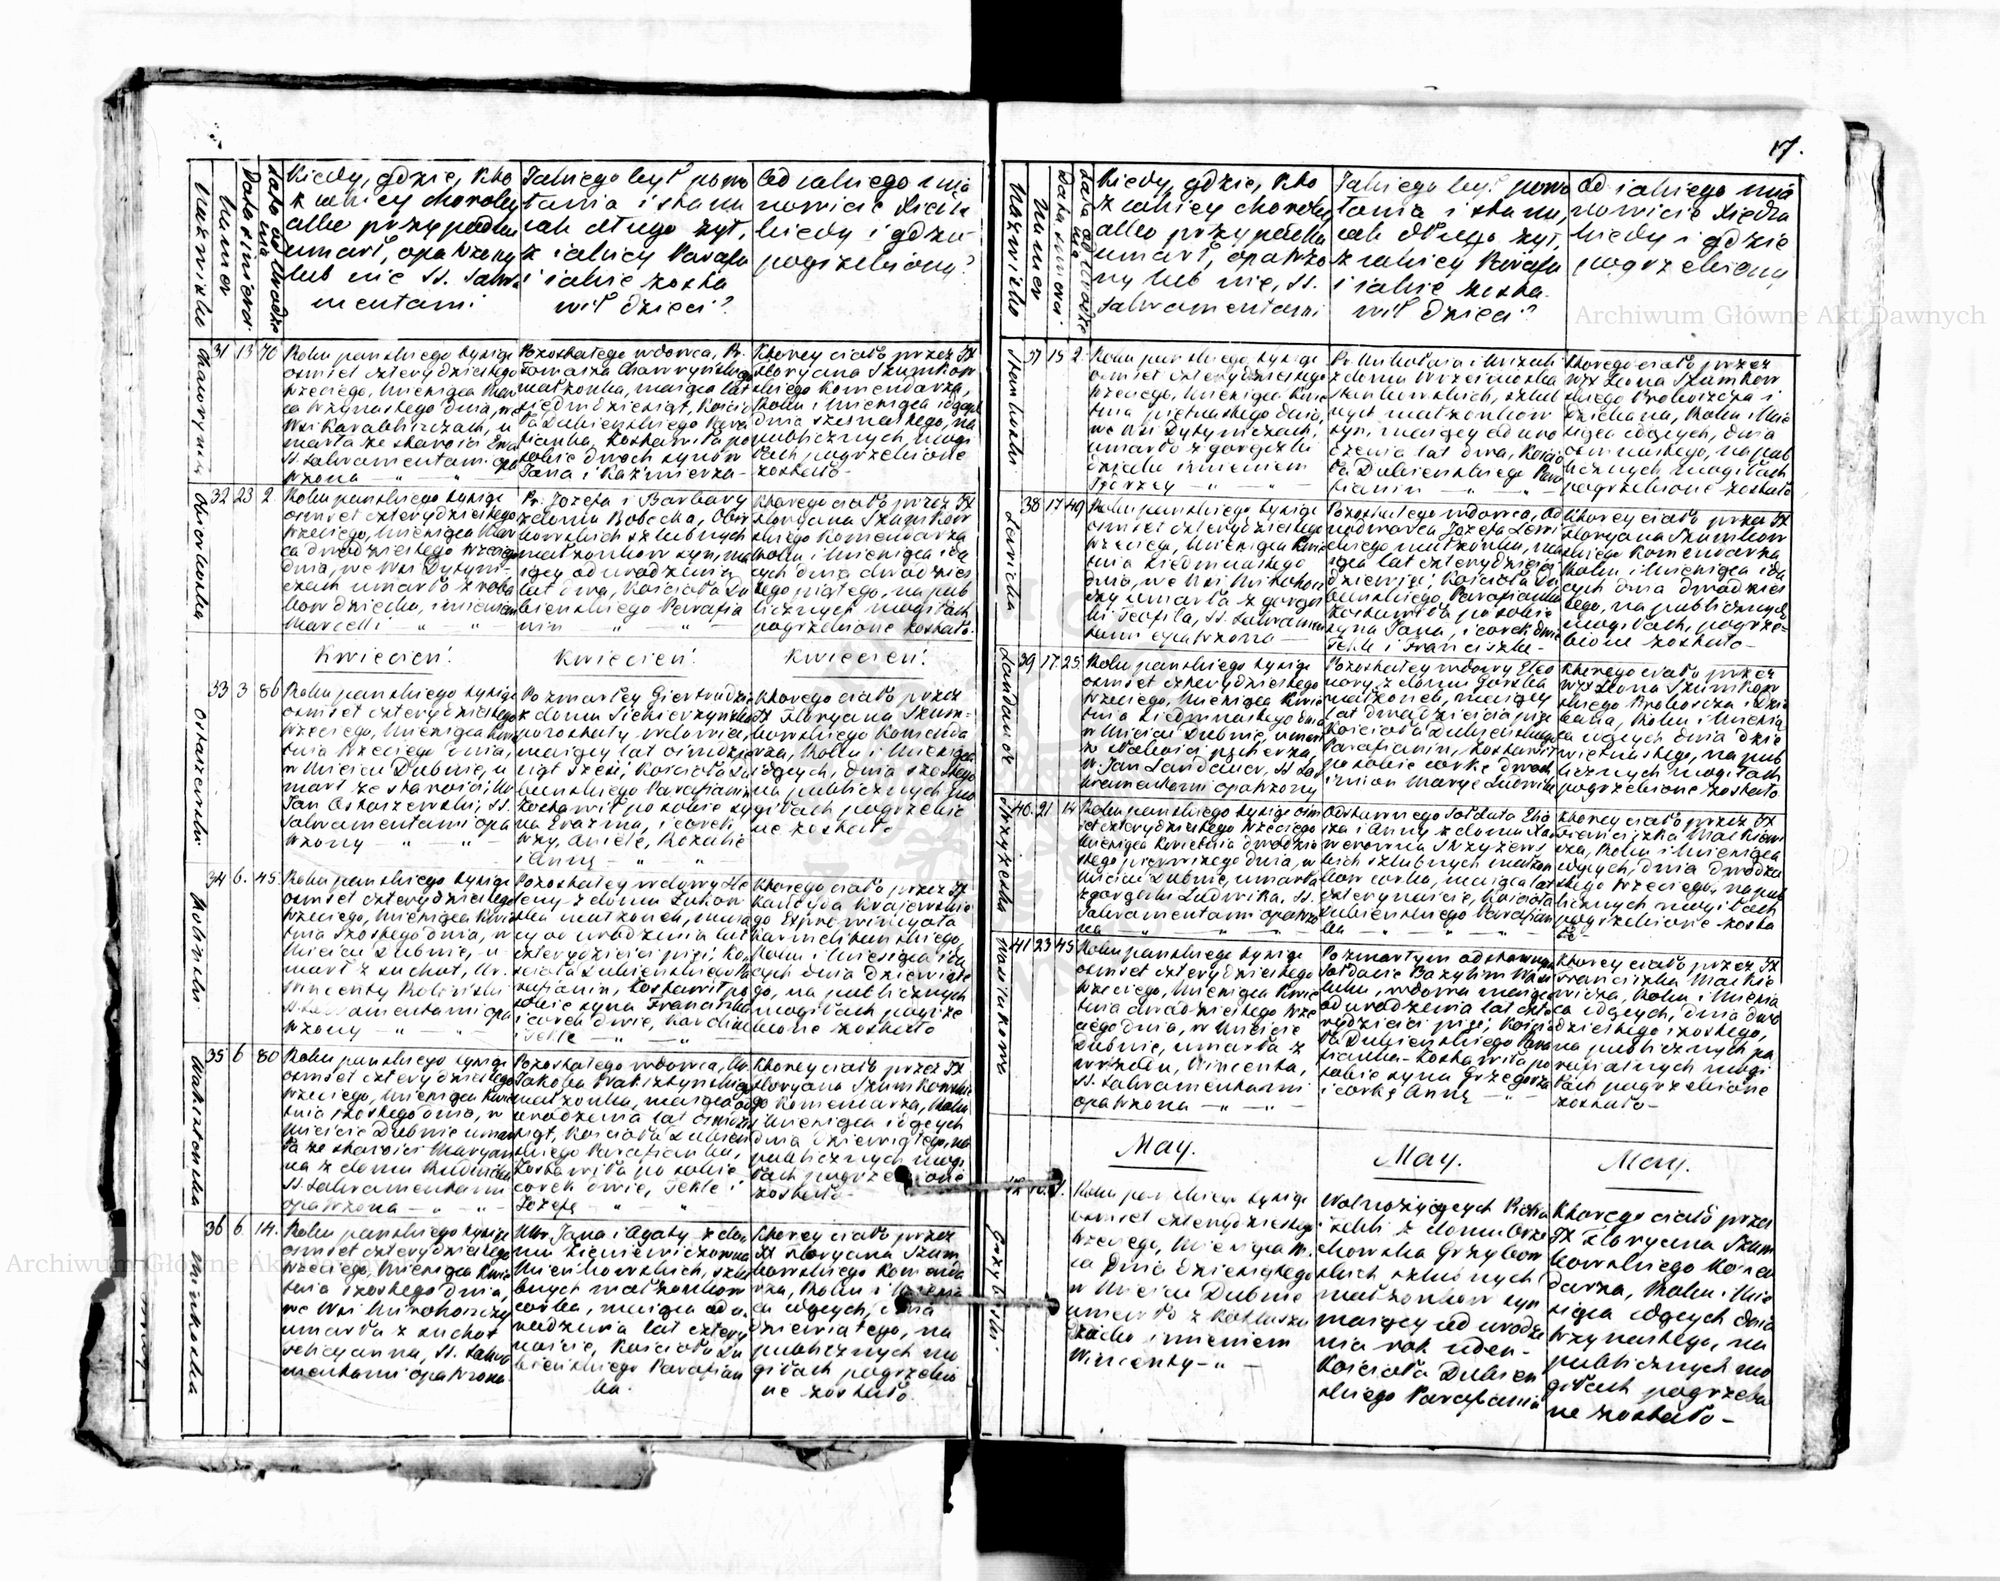 17.
Nazwisko
Numer
Data śmierci
Lata od urodzenia
Kiedy, gdzie, kto
z jakiey choroby
albo przypadku
umarł, opatrzony
lub nie SS. Sakra
mentami
Jakiego był powo
łania i stanu
jak długo żył,
z jakiey Parafii
i jakie zosta
wił dzieci?
Od jakiego mia
nowicie Xiędza
kiedy i gdzie
pogrzebiony?
31 13 70
Roku pańskiego tysiąc
ośmset czterydziestego
trzeciego, Miesiąca Mar
ca trzynastego dnia, we
Wsi
marła ze starości
SS. Sakramentami opa
trzona
Pozostałego wdowca,
małżonka, maiąca lat
siedmdziesiąt, Kościo
ła Dubieńskiego Para
fianka, zostawiła po
sobie dwoch synow
Jana i Kaźmierza
Ktorey ciało przez JX
Floryana Szumkow
skiego Komendarza,
Roku i Miesiąca idącego
dnia szesnastego, na
publicznych mogi
łach pogrzebione
zostało
32 23 2
Roku pańskiego tysiąc
ośmset czterydziestego
trzeciego, Miesiąca Mar
ca dwudziestego trzeciego
dnia, we Wsi Dytyni
czach umarło z roba
kow dziecko, imieniem
Marcelli
Pr. Jozefa i Barbary
z domu Bobecka, Obor
kowskich szlubnych
małżonkow syn, ma
iący od urodzenia
lat dwa, Kościoła Du
bieńskiego Parafia
nin
Ktorego ciało przez JX
Floryana Szumkow
skiego Komendarza
Roku i Miesiąca idą
cych dnia dwudzies
tego piątego, na pub
licznych mogiłach
pogrzebione zostało.
Kwiecień. Kwiecień. Kwiecień.
33 3 86
Ostaszewski
Roku pańskiego tysiąc
ośmset czterydziestego
trzeciego, Miesiąca Kwie
tnia trzeciego dnia,
w Mieście Dubnie, u
marł ze starości,
Jan Ostaszewski, SS.
Sakramentami opa
trzony
Po zmarłey Giertrudzie
z domu Siekierzyńska
pozostały wdowiec,
maiący lat ośmdzie
siąt sześć, Kościoła Du
bieńskiego Parafianin
zostawił po sobie sy
na Erazma, i corek
trzy, Anielę, Rozalię
i Annę
Ktorego ciało przez
JX Floryana Szum
kowskiego Komenda
rza, Roku i Miesiąca
idących, dnia szostego
na publicznych mo
giłach pogrzebio
ne zostało
34 6. 45.
Roku pańskiego tysiąc
ośmset czterydziestego
trzeciego, Miesiąca Kwie
tnia szostego dnia, w
Mieście Dubnie, u
marł z suchot, Ur.
Innocenty
SS. Sakramentami opa
trzony
Pozostałey wdowy He
leny z domu
małżonek, maią
cy od urodzenia lat
czterydzieści pięć, Ko
ścioła Dubieńskiego Pa
rafianin, zostawił po
sobie syna Franciszka
i corek dwie, Karolinę
i Teklę
Ktorego ciało przez JX
Kandyda Krajewskie
go Exprowincyała
Karmelitańskiego,
Roku i Miesiąca idą
cych dnia dziewiąte
go, na publicznych
mogiłach pogrze
bione zostało
35 6 80
Roku pańskiego tysiąc
ośmset czterydziestego
trzeciego, Miesiąca Kwie
tnia szostego dnia, w
Mieście Dubnie umar
ła ze starości Maryan
na z domu
SS. Sakramentami
opatrzona
Pozostałego wdowca, Ur.
Jakoba
małżonka, maiąca od
urodzenia lat ośmdzie
siąt, Kościoła Dubień
skiego Parafianka,
zostawiła po sobie
corek dwie, Teklę i
Jozefę
Ktorey ciało przez JX
Floryana Szumkowskie
go Komendarza, Roku
i Miesiąca idących
dnia dziewiątego, na
publicznych mogi
łach pogrzebione
zostało
36 6 14.
Mińkoska
Roku pańskiego tysiąc
ośmset czterydziestego
trzeciego, Miesiąca Kwie
tnia szostego dnia,
we Wsi Mirohoszczy
umarła z suchot
Felicyanna, SS. Sakra
mentami opatrzona
Ur. Jana i Agaty z do
mu Zieniewiczowna
Mieńkowskich, szlu
bnych małżonkow
corka, maiąca od u
rodzenia lat cztery
naście, Kościoła Du
bieńskiego Parafian
ka.
Ktorey ciało przez
JX Floryana Szum
kowskiego Komenda
rza, Roku i Miesią
ca idących, dnia
dziewiątego, na
publicznych mo
giłach pogrzebio
ne zostało.
Nazwisko
Numer
Data śmierci
Lata od urodze
nia
Kiedy, gdzie, kto
z jakiey choroby
albo przypadku
umarł, opatrzo
ny lub nie, SS.
Sakramentami
Jakiego był powo
łania i stanu,
jak długo żył,
z jakiey Parafii
i jakie zosta
wił dzieci?
Od jakiego mia
nowicie Xiędza
kiedy i gdzie
pogrzebiony
37 15 2
Stankoski
Roku pańskiego tysiąc
ośmset czterydziestego
trzeciego, Miesiąca Kwie
tnia piętnastego dnia,
we Wsi Dytyniczach,
umarło z gorączki
dziecko imieniem
Jędrzey
Pr. Mikołaia i
z domu
Stankowskich, szlub
nych małżonkow
syn, maiący od uro
dzenia lat dwa, Kościo
ła Dubieńskiego Para
fianin
Ktorego ciało przez
WJX Leona Szumkow
skiego Proboszcza i
Dziekana, Roku i Mie
siąca idących, dnia
ośmnastego, na pub
licznych mogiłach
pogrzebione zostało
38 17 49
Lesicka
Roku pańskiego tysiąc
ośmset czterydziestego
trzeciego, Miesiąca Kwie
tnia siedmnastego
dnia, we Wsi Mirohosz
czy umarła z gorącz
ki Teofila, SS. Sakramen
tami opatrzona
Pozostałego wdowca,
Jozefa Lesi
ckiego małżonka, ma
iąca lat czterydzieści
dziewięć, Kościoła Du
bieńskiego Parafianka
zostawiła po sobie
syna Jana, i corek dwie
Teklę i Franciszkę
Ktorey ciało przez JX
Floryana Szumkow
skiego Komendarza
Roku i Miesiąca idą
cych dnia dwudzies
tego, na publicznych
mogiłach, pogrze
bione zostało
39 17 25
Landauer
Roku pańskiego tysiąc
ośmset czterydziestego
trzeciego, Miesiąca Kwie
tnia siedmnastego dnia
w Mieście Dubnie, umarł
z słabości pęcherza,
Ur. Jan Landauer, SS. Sa
kramentami opatrzony
Pozostałey wdowy Eleo
nory z domu Gorska
małżonek, maiący
lat dwadzieścia pięć
Kościoła Dubieńskiego
Parafianin, zostawił
po sobie corkę dwoch
imion Maryę Ludwikę
Ktorego ciało przez
WJX Leona Szumkow
skiego Proboszcza i Dzie
kana, Roku i Miesią
ca idących dnia dzie
więtnastego, na pub
licznych mogiłach
pogrzebione zostało
40. 21 14
Skrzyżeska
Roku pańskiego tysiąc ośm
set czterydziestego trzeciego
Miesiąca Kwietnia dwudzie
stego pierwszego dnia, w
Mieście Dubnie, umarła
z gorączki Ludwika, SS.
Sakramentami opatrzo
na
Odstawnego Sołdata Elia
sza i Anny z domu
Skrzyżews
kich szlubnych małżon
kow corka, maiąca lat
czternaście, Kościoła
Dubieńskiego Parafian
ka
Ktorey ciało przez JX
Franciszka
Roku i Miesiąca
idących, dnia dwudzie
stego trzeciego, na pub
licznych mogiłach
pogrzebione zosta
ło
41 23 45
Wasilukowa
Roku pańskiego tysiąc
ośmset czterydziestego
trzeciego, Miesiąca Kwie
tnia dwudziestego trze
ciego dnia, w Mieście
Dubnie, umarła z
wrzodu, Wincenta,
SS. Sakramentami
opatrzona
Po zmarłym odstawnym
Sołdacie Bazylim Wasi
luku, wdowa maiąca
od urodzenia lat czte
rydzieści pięć, Kościo
ła Dubieńskiego Para
fianka zostawiła po
sobie syna Grzegorza
i corkę Annę
Ktorey ciało przez JX
Franciszka
Roku i Miesią
ca idących, dnia dwu
dziestego szostego,
na publicznych pa
rafialnych mogi
łach pogrzebione
zostało
May. May. May.
Grzyboski
Roku pańskiego tysiąc
ośmset czterydziestego
trzeciego, Miesiąca Ma
ia dnia dziesiątego
w Mieście Dubnie
umarło z kokluszu
dziecko imieniem
Wincenty
Wolnożyjących
z domu
Grzybow
skich szlubnych
małżonkow syn
maiący od urodze
nia rok ieden
Kościoła Dubień
skiego Parafianin
Ktorego ciało przez
JX Floryana Szum
kowskiego Komen
darza, Roku i Mie
siąca idących dnia
trzynastego, na
publicznych mo
giłach pogrzebio
ne zostało
Archiwum Główne Akt Dawnych
Archiwum Główne Akt Dawnych